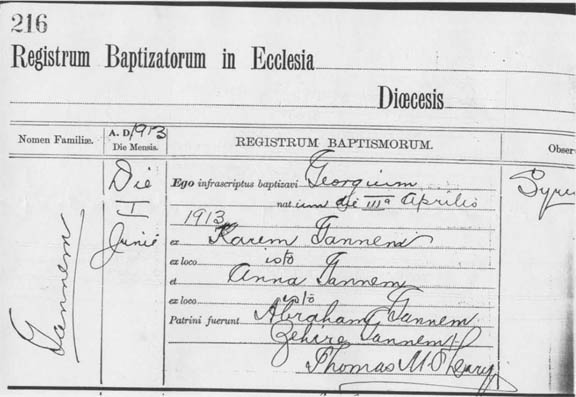 216
Registrum Baptizatorum in Ecclesia
Diœcesis
Nomen Familiæ.
A. D. 1913
Die Mensis.
REGISTRUM BAPTISMORUM.
Obser
Tannem
Die
II
Junii
Ego infrascriptus baptizavi Georgium
natum die IIIa Aprilis
1913
ex Karem Tannem
ex loco isto
et Anna Tannem
ex loco isto
Patrini fuerunt Abraham Tannem
Zehire Tannem
Thomas M. O'Leary
Syri